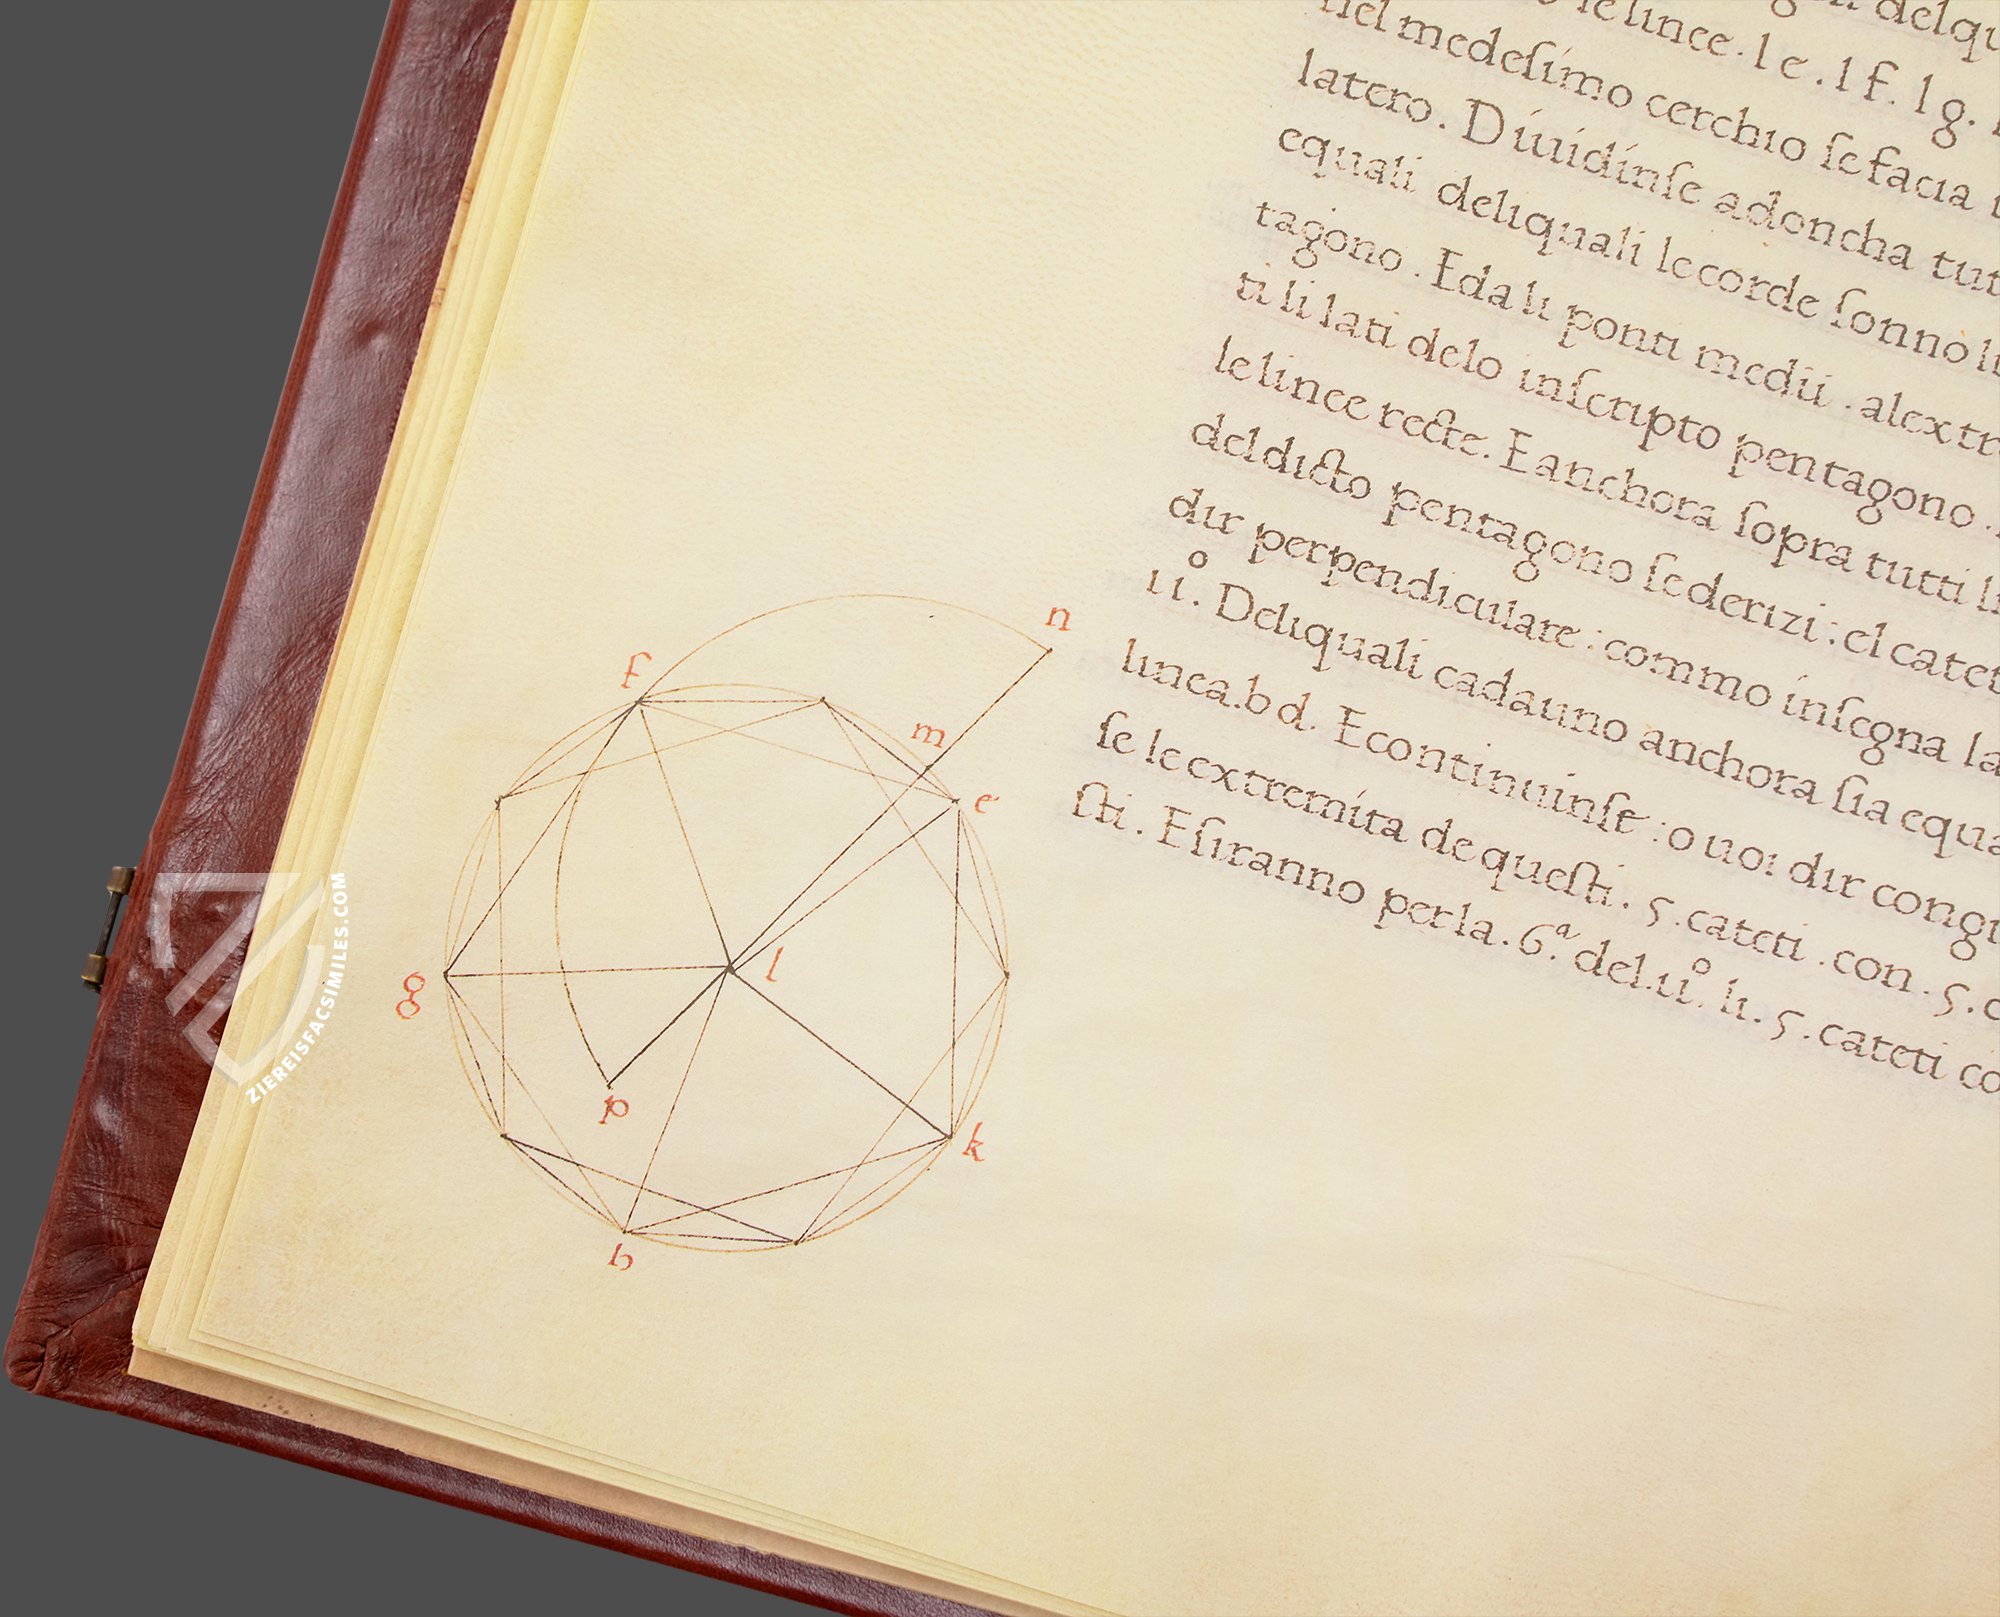 le linee . l e . l f . l g .
nel medesimo cerchio se facia
latero . Diuidinse adoncha tut
equali deliquali le corde sonno li
tagono . Eda li ponti medii . alextr
ti li lati delo inscripto pentagono .
le linee recte . E anchora sopra tutti li
del dicto pentagono se derizi : el catet
dir perpendiculare : commo insegna la
11º . Deliquali cadauno anchora sia equa
linea . b d . E continuinse : o uoi dir congi
se le extremita de questi . 5 . cateti . con . 5 . c
sti . E siranno per la . 6ª . del . 11º . li . 5 . cateti co
n
f
m
e
g
l
p
k
h
ZIEREISFACSIMILES.COM